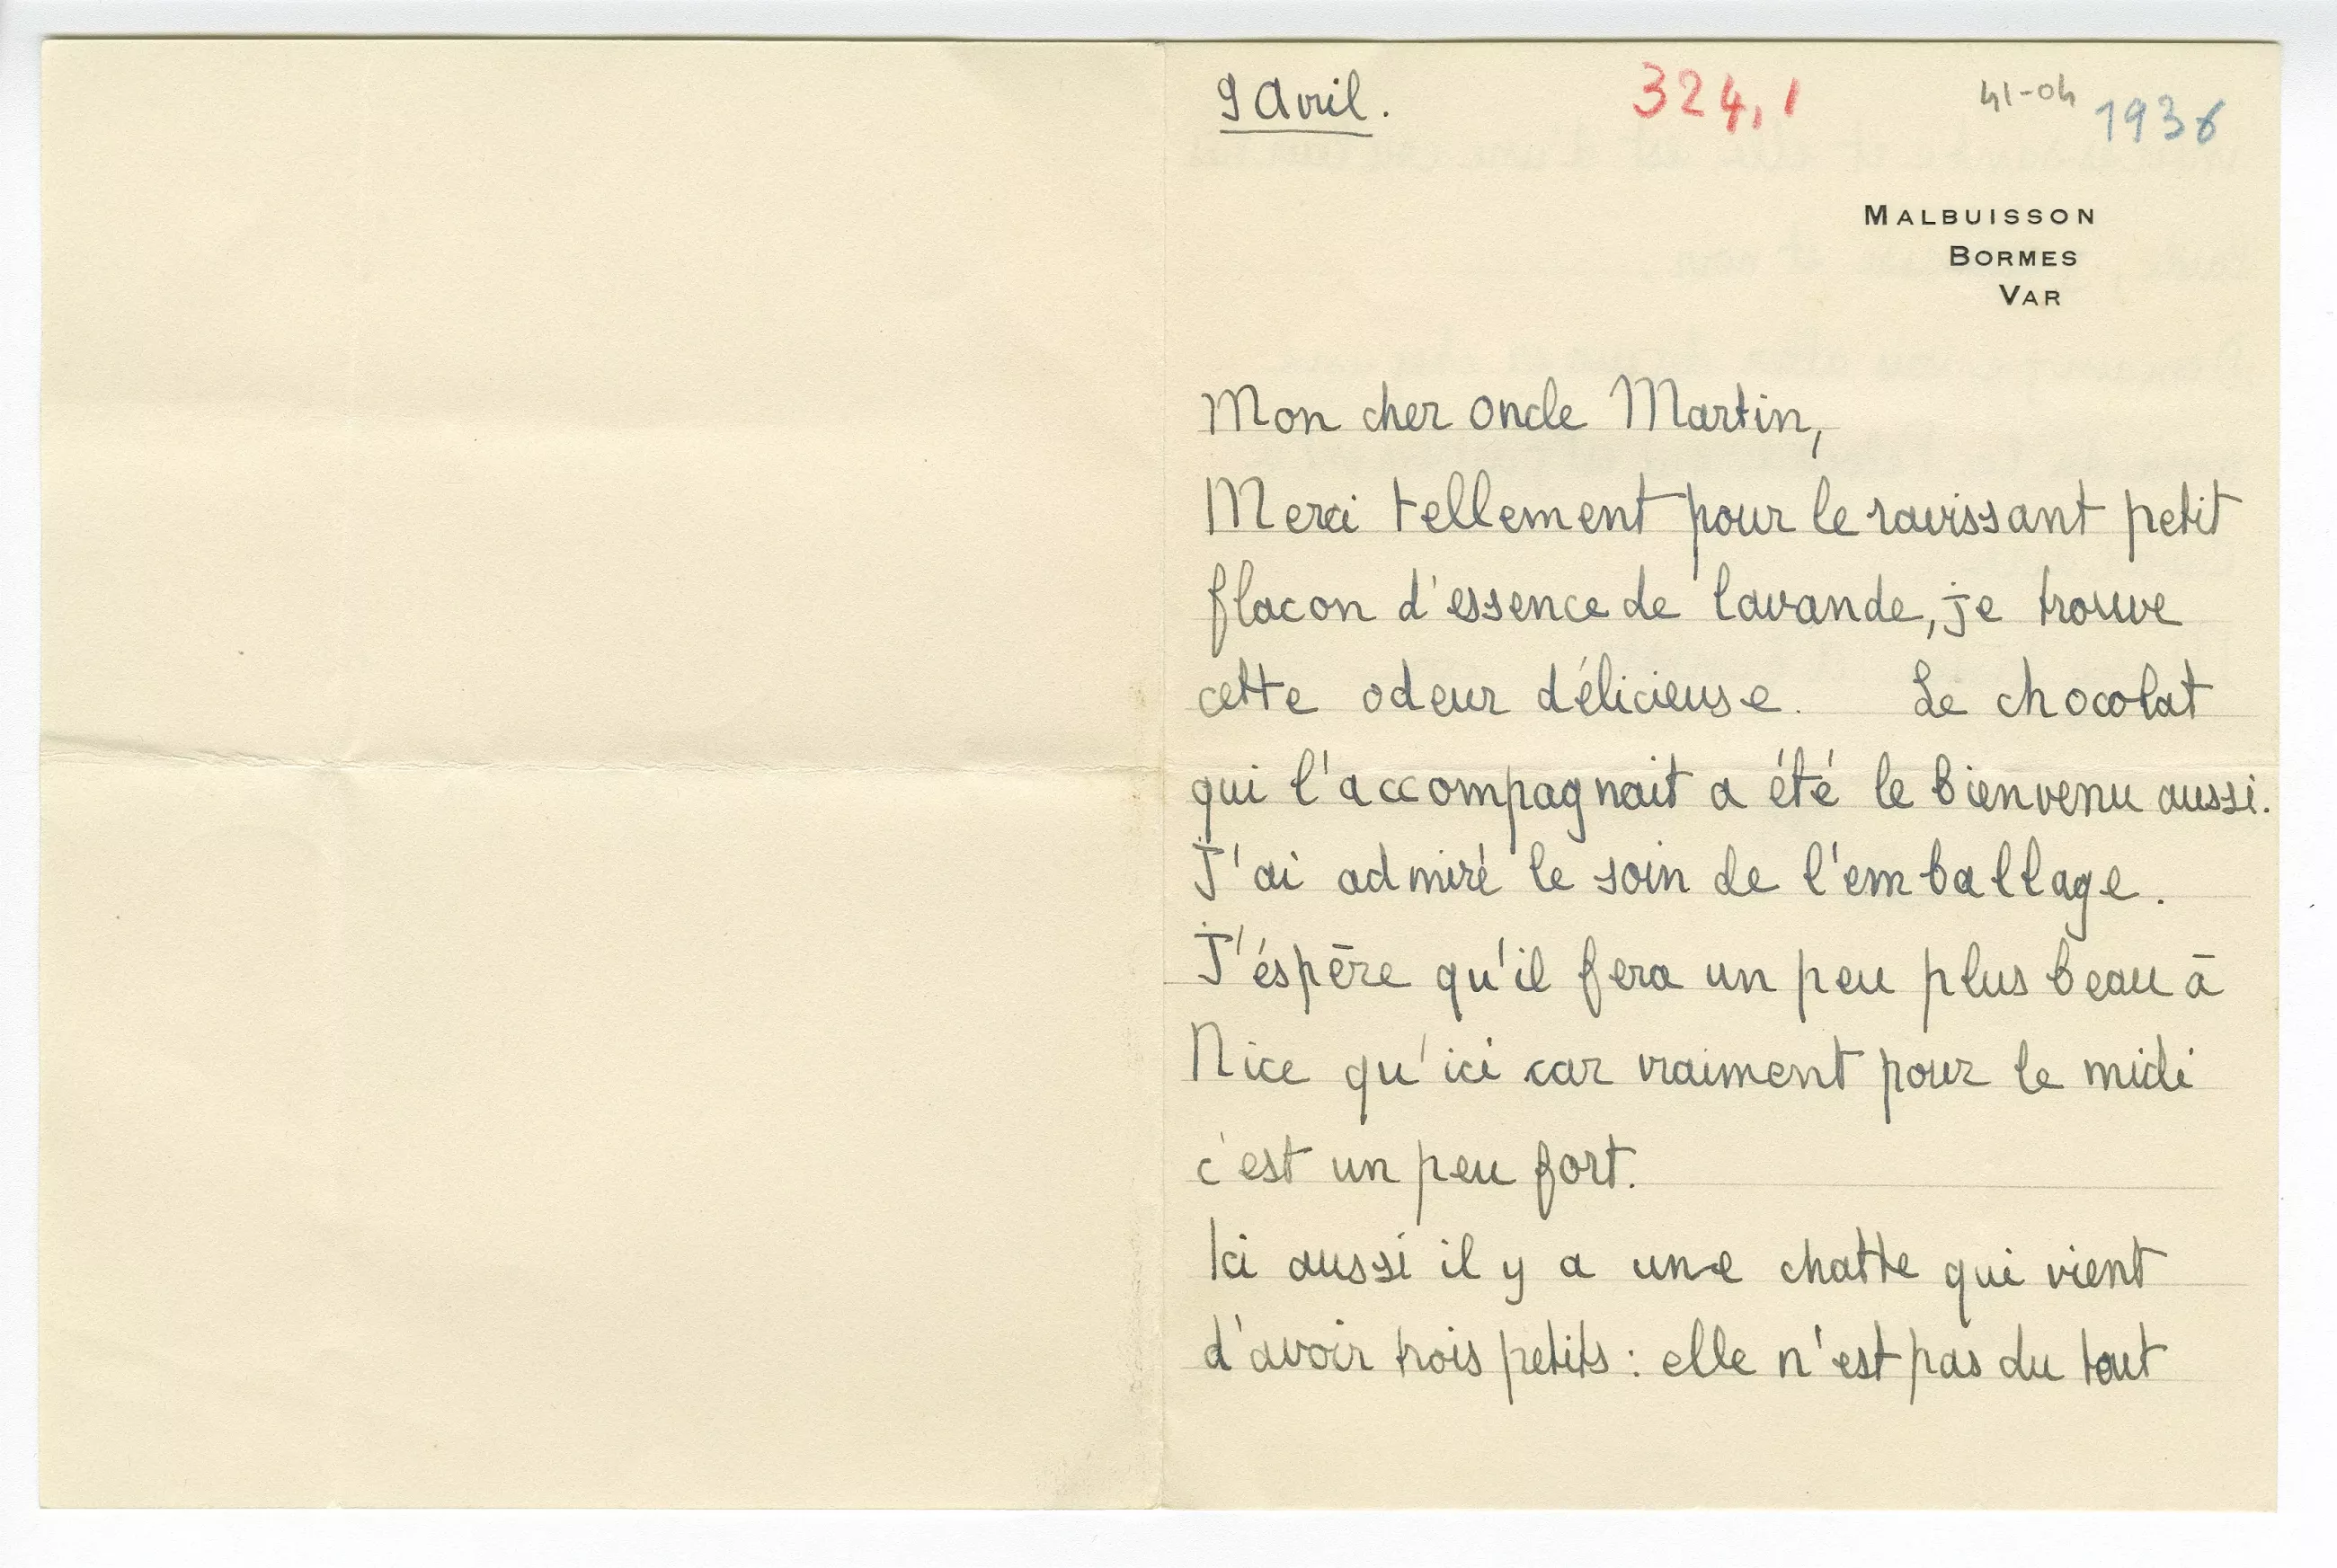 9 Avril.
324,1
41-04
1936
MALBUISSON
BORMES
VAR
Mon cher oncle Martin,
Merci tellement pour le ravissant petit
flacon d'essence de lavande, je trouve
cette odeur délicieuse. Le chocolat
qui l'accompagnait a été le bienvenu aussi.
J'ai admiré le soin de l'emballage.
J'éspère qu'il fera un peu plus beau à
Nice qu'ici car vraiment pour le midi
c'est un peu fort.
Ici aussi il y a une chatte qui vient
d'avoir trois petits : elle n'est pas du tout